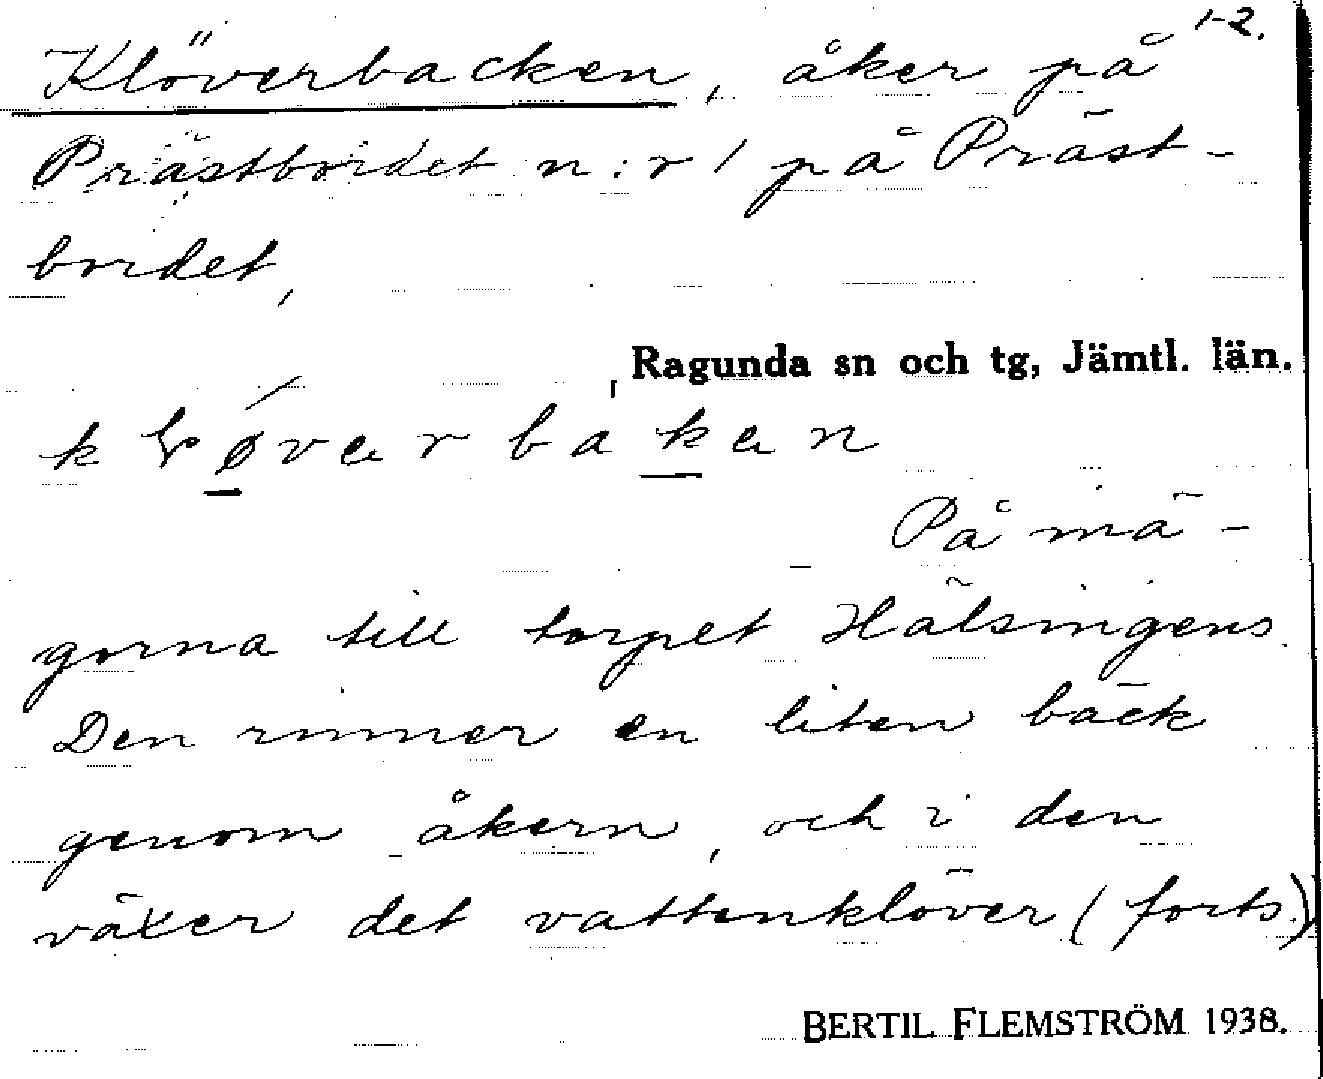 1-2.
Klöverbacken, åker på
Prästbordet n:r 1 på Präst-
bordet,
Ragunda sn och tg, Jämtl. län.
På mä-
gorna till torpet Hälsingens
Den rinner en liten bäck
genom åkern, och i den
växer det vattenklöver (forts.)
BERTIL FLEMSTRÖM 1938.